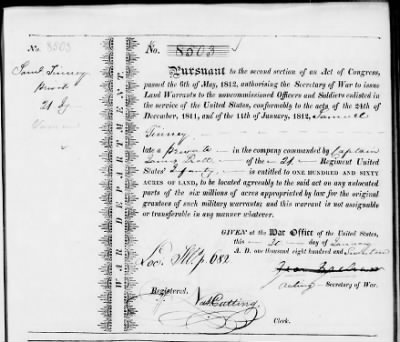 No. 8503
Saml Tinney
Private
21 Inf
No. 8503
WAR DEPARTMENT.
Pursuant to the second section of an Act of Congress,
passed the 6th of May, 1812, authorising the Secretary of War to issue
Land Warrants to the noncommissioned Officers and Soldiers enlisted in
the service of the United States, conformably to the acts of the 24th of
December, 1811, and of the 11th of January, 1812, Samuel
Tinney
late a private in the company commanded by Captain
of the 21 Regiment United
States' Infantry is entitled to ONE HUNDRED AND SIXTY
ACRES OF LAND, to be located agreeably to the said act on any unlocated
parts of the six millions of acres appropriated by law for the original
grantees of such military warrants; and this warrant is not assignable
or transferable in any manner whatever.
GIVEN at the War Office of the United States,
this day of January
A. D. one thousand eight hundred and
Loc. 682
acting Secretary of War.
Registered.
Nat Cutting
Clerk.